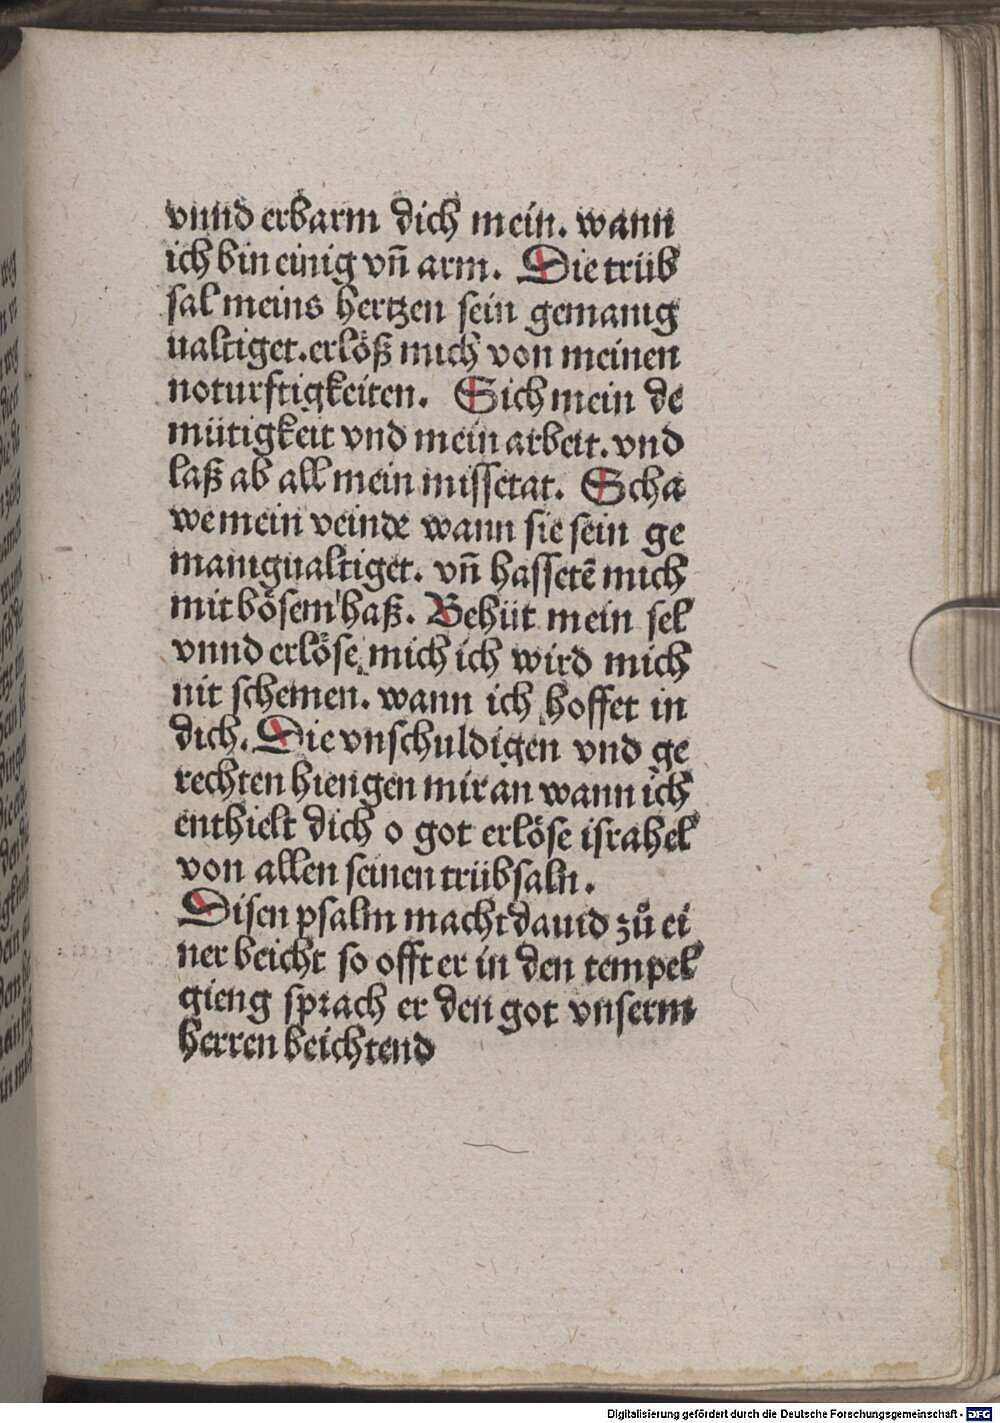 vnnd erbarm dich mein. wann
ich bin einig vn̄ arm. Die trüb
sal meins hertzen sein gemanig
ualtiget. erlöß mich von meinen
noturftigkeiten. Sich mein de
mütigkeit vnd mein arbeit. vnd
laß ab all mein missetat. Scha
we mein veinde wann sie sein ge
manigualtiget. vn̄ hassetē mich
mit bösem haß. Behüt mein sel
vnnd erlöse mich ich wird mich
nit schemen. wann ich hoffet in
dich. Die vnschuldigen vnd ge
rechten hiengen mir an wann ich
enthielt dich o got erlöse israhel
von allen seinen trübsaln.
Disen psalm macht dauid zů ei
ner beicht so offt er in den tempel
gieng sprach er den got vnserm
herren beichtend
Digitalisierung gefördert durch die Deutsche Forschungsgemeinschaft - DFG